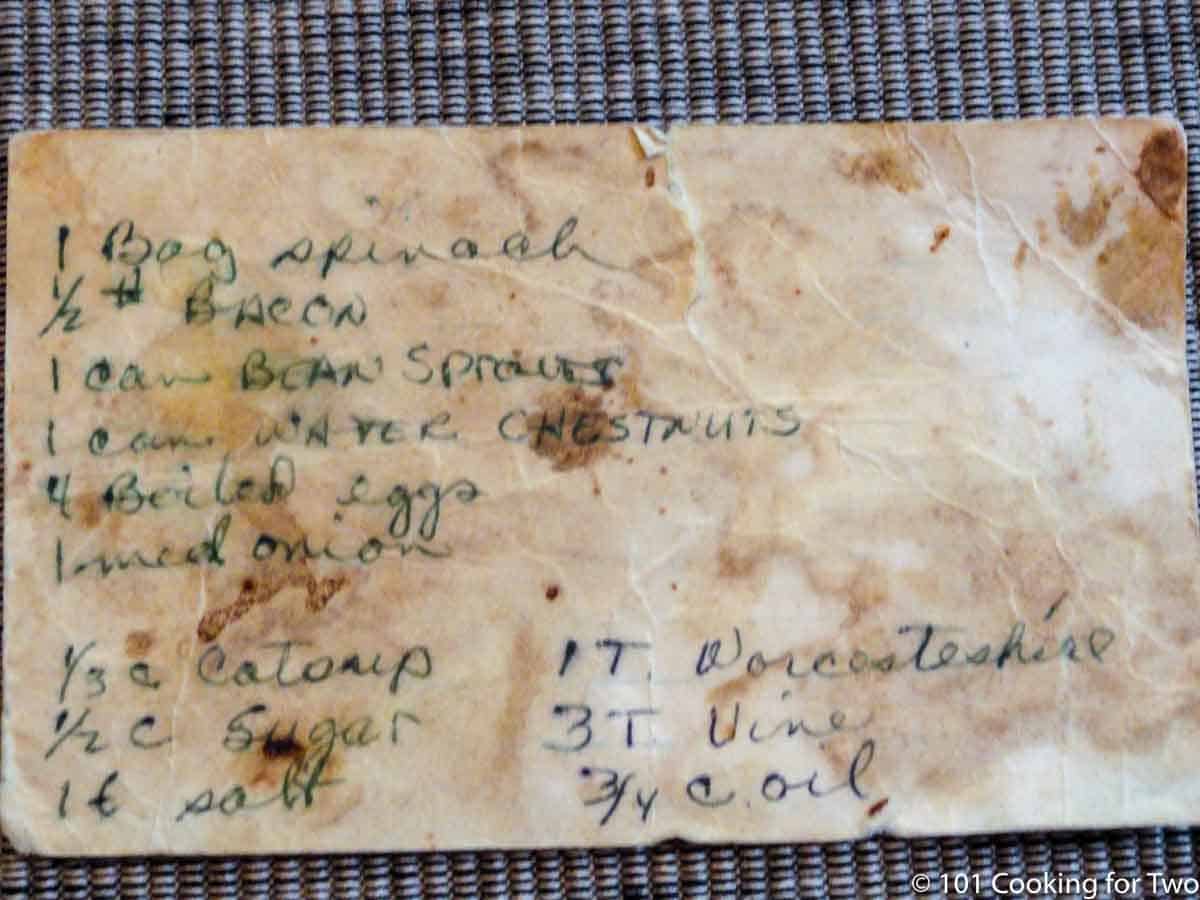 1 Bag spinach
1/2 # BACON
1 can BEAN SPROUTS
1 can WATER CHESTNUTS
4 Boiled eggs
1 med onion
1/3 c Catsup
1/2 c Sugar
1 t salt
1 T. Worcesteshire
3 T. Vine
3/4 c. oil
© 101 Cooking for Two